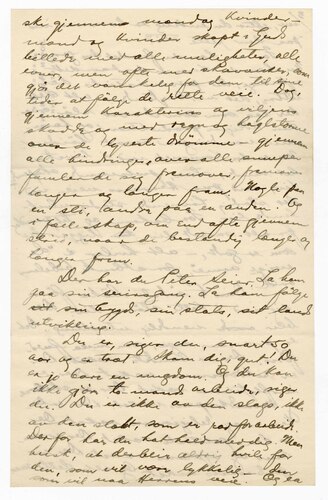 ske gjennem mandag Kvinder-
mand og Kvinder skapt i Guds
billede med alle muligheter, alle
evner, men ofte med
gjør det vanskelig for dem til
tider at følge de rette veie. Dog,
gjennem karakterens og viljens
styrke og med regn og haglstorme
over de lyseste drømme - gjennem
alle hindringer, over alle
famler de sig fremover, fremover
længer og længer frem. Nogle paa
en sti, andre paa en anden. Og
i fællesskap, om end ofte gjennem
naar de bestandig længer og
længer frem.
Der har du Peter Heier. La ham
faa sin La ham følge
sit sin bygd, sin slats, sit lands
utvikling.
Du er, siger du, snart 50
aar og er træt. Skam dig, gut! Du
er jo bare en ungdom. Og du kan
ikke gjøre to mands arbeide, siger
du. Du er ikke av den slags, ikke
av den slats, som er rad for arbeid.
Derfor har du hat held med dig. Men
husk, at der blir aldrig hvile for
den, som vil være lykkelig - den
som vil naa Herrens veie. Og la